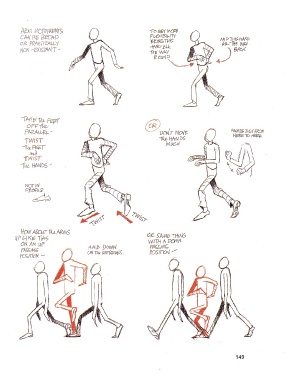 ARM EXTREMES
CAN BE BROAD
OR PRACTICALLY
NON-EXISTENT -
TO GET MORE
FLEXIBILITY
ALL
THE WAY
ROUND
AND THIS HAND
THE WAY
BACK
TAKE THE FEET
OFF THE
PARALLEL -
TWIST
THE FEET
AND
TWIST
THE HANDS -
NOT IN
PEOPLE
TWIST
TWIST
OR
DON'T MOVE
THE HANDS
MUCH
FROM
HERE TO HERE
HOW ABOUT THE ARMS
UP LIKE THIS
ON AN UP
PASSING
POSITION -
AND DOWN
ON THE EXTREMES
OR SAME THING
WITH A DOWN
PASSING
POSITION -
149